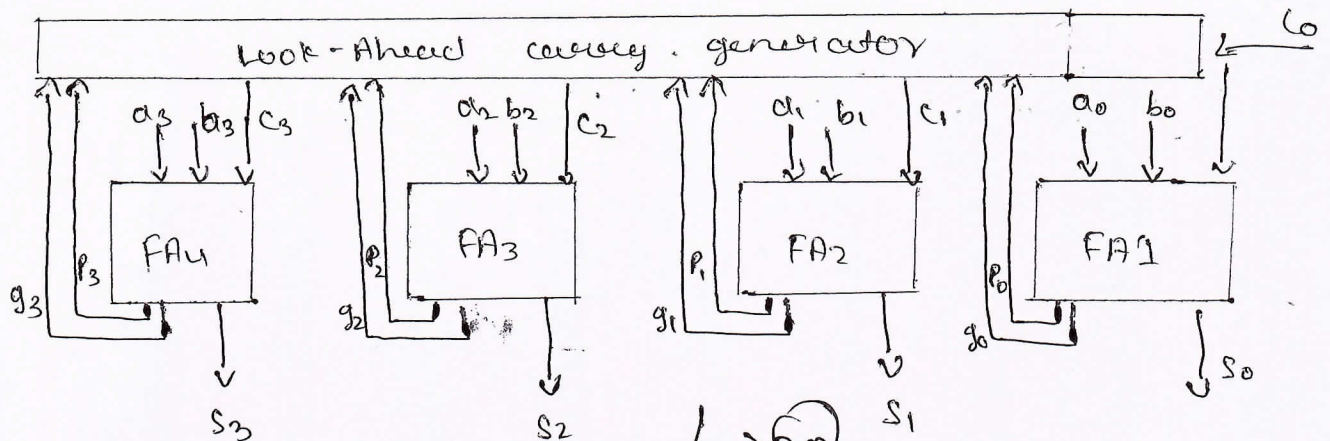 Look-Ahead carry. generator
C0
a3 b3 C3 a2 b2 C2 a1 b1 C1 a0 b0
FA4 FA3 FA2 FA1
g3 P3 g2 P2 g1 P1 g0 P0
S3 S2 S1 S0